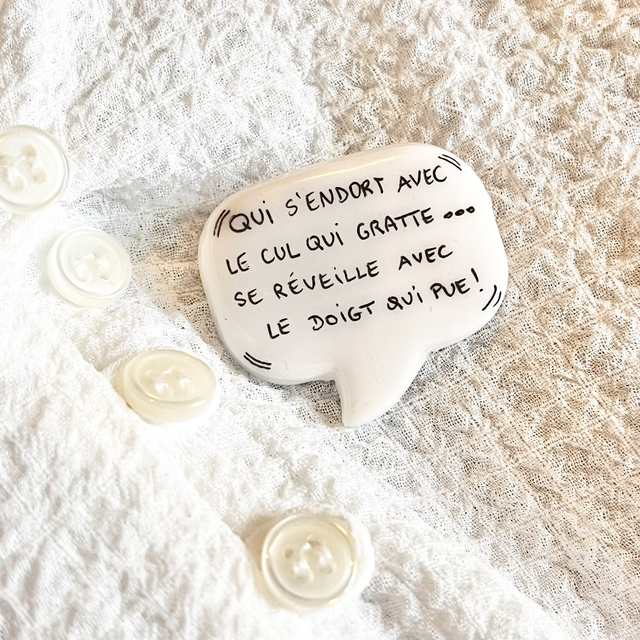 QUI S'ENDORT AVEC
LE CUL QUI GRATTE ...
SE RÉVEILLE AVEC
LE DOIGT QUI PUE !